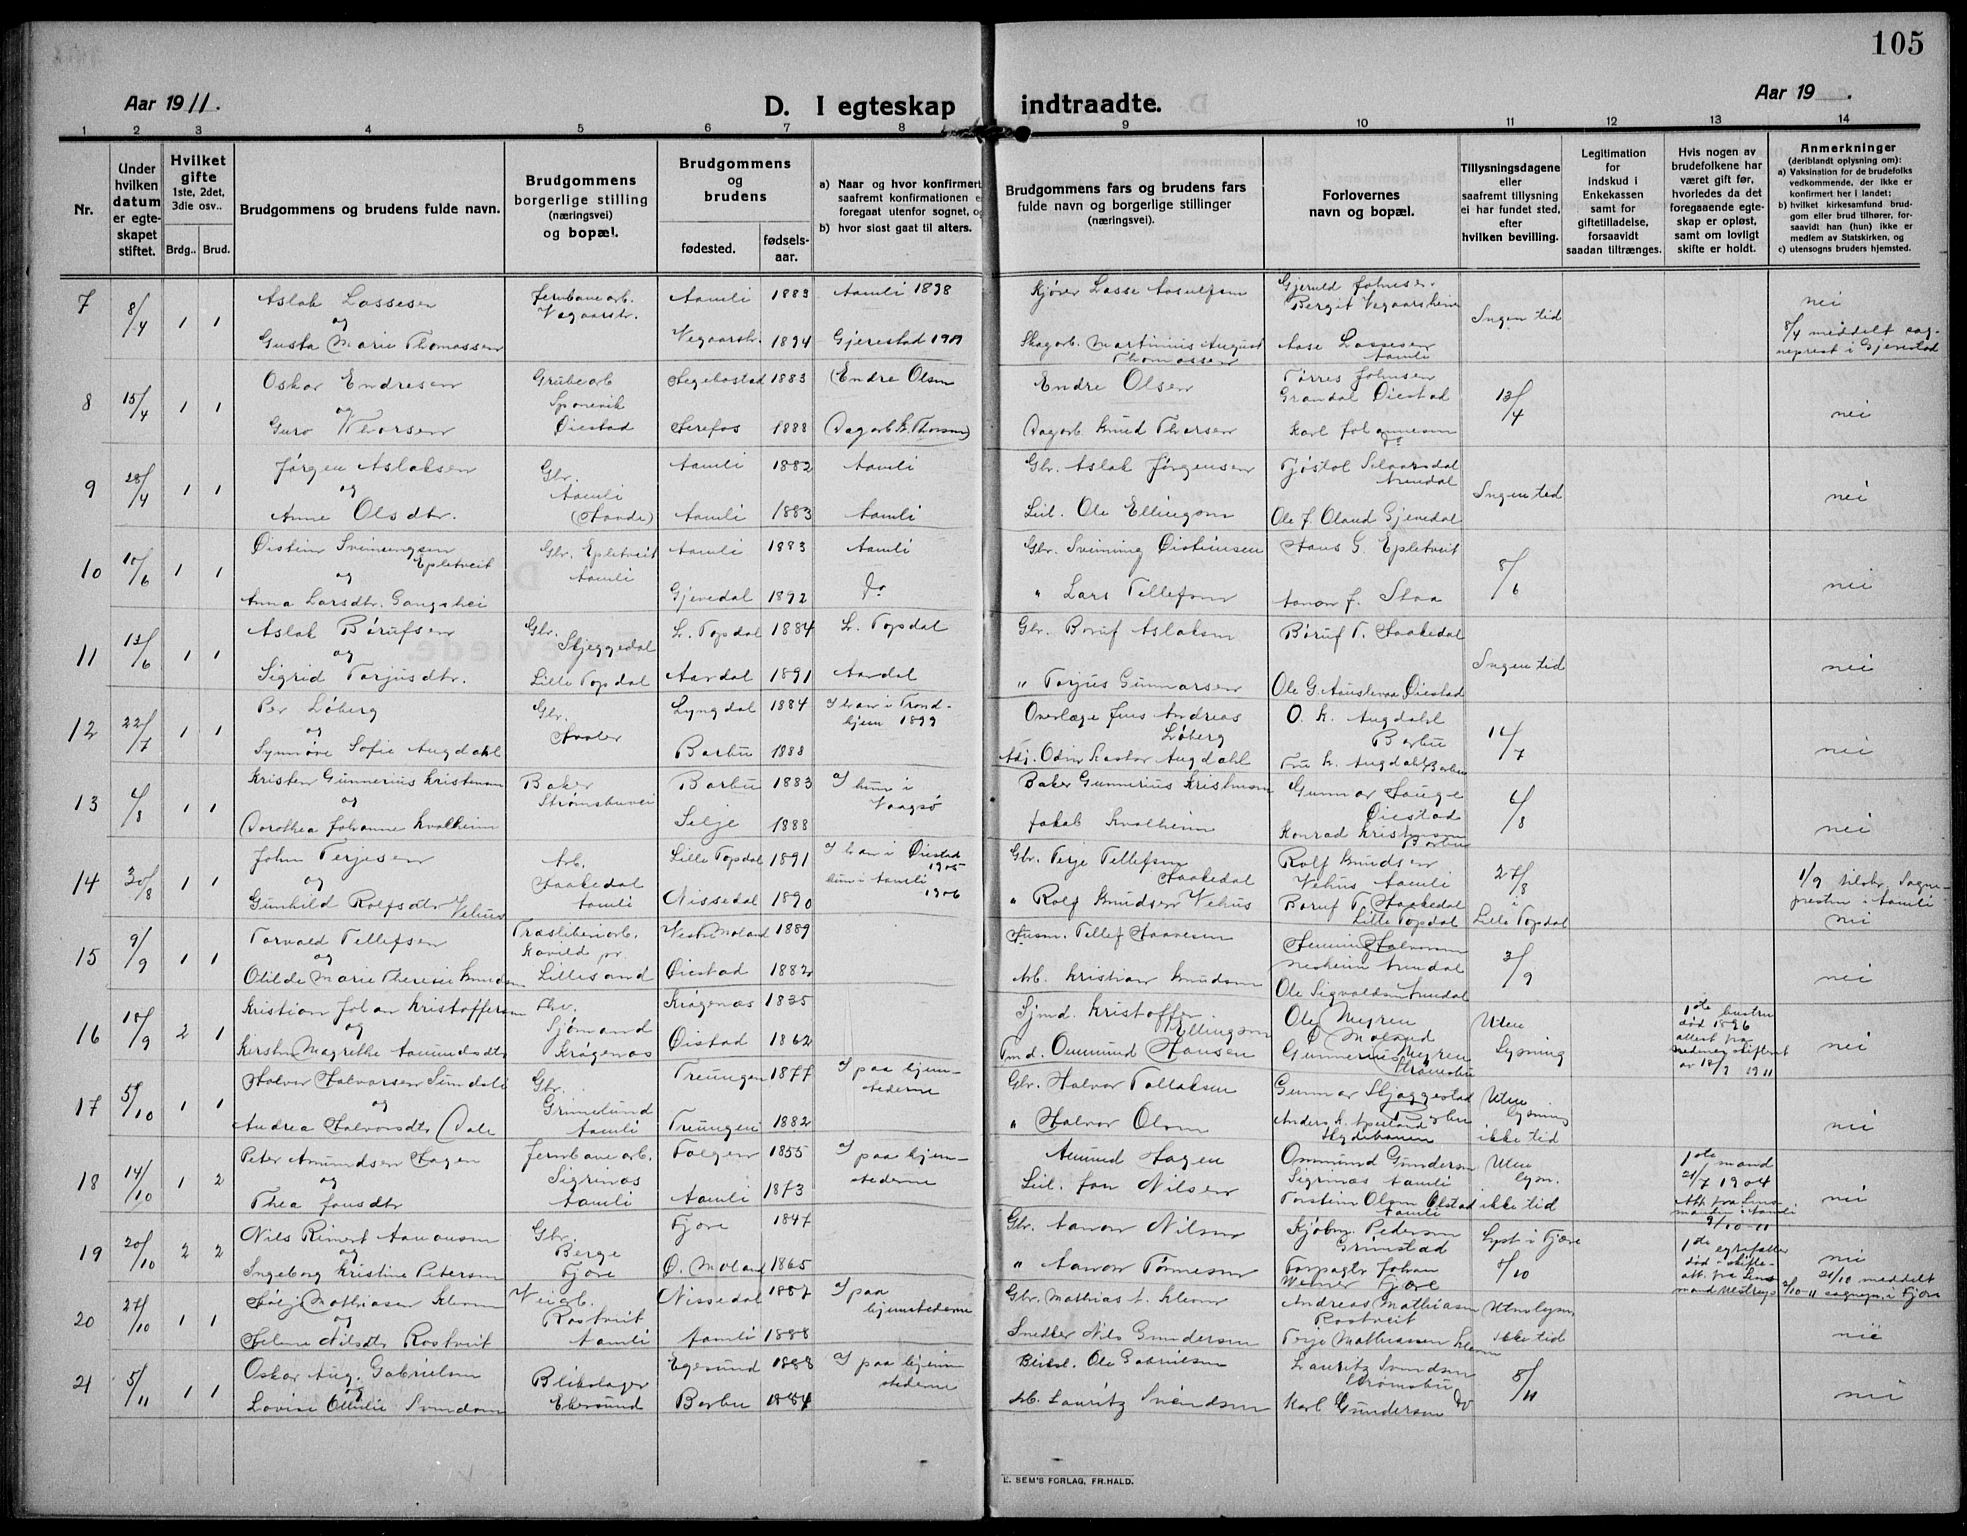 105
Aar 1911.
D. I egteskap indtraadte.
Aar 19 .
1 2 3 4 5 6 7 8 9 10 11 12 13 14
Nr.
Under hvilken datum er egte-skapet stiftet.
Hvilket gifte 1ste, 2det, 3die osv..
Brdg.. Brud.
Brudgommens og brudens fulde navn.
Brudgommens borgerlige stilling (næringsvei) og bopæl.
Brudgommens og brudens
fødested. fødsels-aar.
a) Naar og hvor konfirmert saafremt konfirmationen e foregaat utenfor sognet, og
b) hvor sidst gaat til alters.
Brudgommens fars og brudens fars fulde navn og borgerlige stillinger (næringsvei).
Forlovernes navn og bopæl.
Tillysningsdagene eller saafremt tillysning ei har fundet sted, efter hvilken bevilling.
Legitimation for indskud i Enkekassen samt for giftetilladelse, forsaavidt saadan tiltrænges.
Hvis nogen av brudefolkene har været gift før, hvorledes da det foregaaende egte-skap er opløst, samt om lovligt skifte er holdt.
Anmerkninger (deriblandt oplysning om):
a) Vaksination for de brudefolks vedkommende, der ikke er konfirmert her i landet;
b) hvilket kirkesamfund brud-gom eller brud tilhører, for-saavidt han (hun) ikke er medlem av Statskirken, og
c) utensogns bruders hjemsted.
7 8/4 1 1 Aslak Lassesen Jernbanearb. Vegaarsh. Aamli 1883 Aamli 1898 Kjører Lasse Aasulfsen Gjeruld Johnsen Bergit Vegaarsheien Ingen tid nei
og
Gusta Marie Thomassen Vegaarsh. 1894 Gjerestad 1909 Skogarb. Martinius August Thomassen Aase Lassesen Aamli 8/4 meddelt sog-neprest i Gjerestad
8 15/4 1 1 Oskar Endresen Grubearb Sponevik Øiestad Hegebostad 1883 (Endre Olsen Endre Olsen Tørres Johnsen Grandal Øiestad 13/4 nei
og
Guro Thorsen Herefos 1888 (Dagarb K. Thorsen) Dagarb Knud Thorsen Karl Johannesen do
9 28/4 1 1 Jørgen Aslaksen Gbr. Aamli (Haavde) Aamli 1882 Aamli Gbr. Aslak Jørgensen Tjøstol Selaasdal Arendal Ingen tid nei
og
Anne Olsdtr. Aamli 1883 Aamli Leil. Ole Ellingsen Ole J. Øland Gjevedal
10 10/6 1 1 Øistein Sveinungsen Epletveit Gbr. Epletveit Aamli Aamli 1883 Aamli Gbr. Sveinung Øistensen Hans G. Epletveit 8/6 nei
og
Anna Larsdtr. Gangshei Gjevedal 1892 do " Lars Tellefsen Aanon J. Staa
11 13/6 1 1 Aslak Børufsen Gbr. Skjeggedal Lille Topdal L. Topdal 1884 L. Topdal Gbr. Boruf Aslaksen Børuf T. Haakedal Ingen tid nei
og
Sigrid Torjusdtr. Aardal 1891 Aardal " Torjus Gunnarsen Ole G. Aanslevaa Øiestad
12 22/7 1 1 Per Løberg Gbr. Haaler Lyngdal 1884 I br. av i Trond-hjem 1899 Overlæge Jens Andreas Løberg O. K. Augdahl Barbu 16/7 nei
og
Synnøve Sofie Augdahl Barbu 1888 Adj. Odin Kastor Augdahl Fru K. Augdahl Barbu
13 4/8 1 1 Kristen Gunnerius Kristensen Baker Strømsbuvei Barbu 1883 I hun i Vaagsø Baker Gunnerius Kristensen Gunnar Hauge Øiestad 6/8 nei
og
Dorothea Johanne Kvalheim Selje 1888 Jakob Kvalheim Konrad Kristensen Barbu
14 30/8 1 1 John Terjesen Arb. Haakedal Aamli Lille Topdal 1891 I br. av i Øiestad 1905 Gbr. Terje Tellefsen Haakedal Rolf Knudsen Vehus Aamli 27/8 i Lille Topdal 1/9 tilskr. Sogne-presten i Aamli nei
og
Gunhild Rolfsdtr Vehus Nissedal 1890 hun i Aamli 1906 " Rolf Knudsen Vehus Boruf T. Haakedal Lille Topdal
15 9/9 1 1 Torvald Tellefsen Træsliberiarb. Kavild pr. Lillesand Vestre Moland 1889 Husm. Tellef Haavesen Henning Halvorsen Nesheim Arendal 3/9 nei
og
Otilde Marie Therese Knudsen Øiestad 1882 Arb. Kristian Knudsen Ole Sigvaldsen Arendal
16 10/9 2 1 Kristian Johan Kristoffersen Sjømand Krøgenæs Krøgenæs 1835 Sjmd. Kristoffer Ellingsen Ole Myren Ø Moland Uten Lysning 1ste hustru død 1896 attest fra nedenes skifteret av 18/9 1911 nei
og
Kirsten Magrethe Aamundsdtr Øistad 1862 Tmd. Ommund Hansen Gunnerius Myren Strømsbu
17 5/10 1 1 Halvor Halvorsen Sundeli Gbr. Grimelund Aamli Treungen 1877 I paa hjem-stederne Gbr. Halvor Tallaksen Gunnar Skjæggestad Barbu Uten lysning ikke tid nei
og
Andrea Halvorsdtr Dale Treungen 1882 " Halvor Olsen Anders K. Aperland Hydebanen
18 14/10 1 2 Peter Amundsen Hagen Jernbanearb. Sigrinæs Aamli Folgen 1855 I paa hjem-stederne Amund Hagen Ommund Gundersen Sigrinæs Aamli Uten lysn. ikke tid 1ste mand 21/7 1904 Att. fra Lens-manden i Aamli 9/10-11 nei
og
Thea Jonsdtr Aamli 1873 Leil. Jon Nilsen Torstein Olsen Ølstad Aamli
19 20/10 2 2 Nils Reinert Aanonsen Gbr. Berge Fjære Fjære 1847 Gbr. Aanon Nilsen Kjøbm. Pedersen Grimstad Lyst i Fjære 8/10 1ste egtefæller død - skifte-att. fra Lens-mand nei
og
Ingeborg Kristine Petersen Ø. Moland 1865 " Aanon Tønnesen Forpagtr Johan Werner Fjære 21/10 meddelt sognepr. i Fjære
20 27/10 1 1 Følje Mathiasen Klevn Veiarb. Rostveit Aamli Nissedal 1887 I paa hjemstederne Gbr. Mathias A. Klevn Andreas Mathiasen Rostveit Uten lysn. ikke tid nei
og
Helene Nilsdtr Rostveit Aamli 1888 Snedker Nils Gundersen Terje Mathiassen Klevn
21 5/11 1 1 Oskar Aug. Gabrielsen Blikslager Ekersund Egesund 1888 I paa hjem-stederne Bliksl. Ole Gabrielsen Lauritz Svendsen Strømsbu 8/11 nei
og
Lovise Ottilie Svendsen Barbu 1884 Arb. Lauritz Svendsen Karl Gundersen do
E. SEM'S FORLAG, FR.HALD.